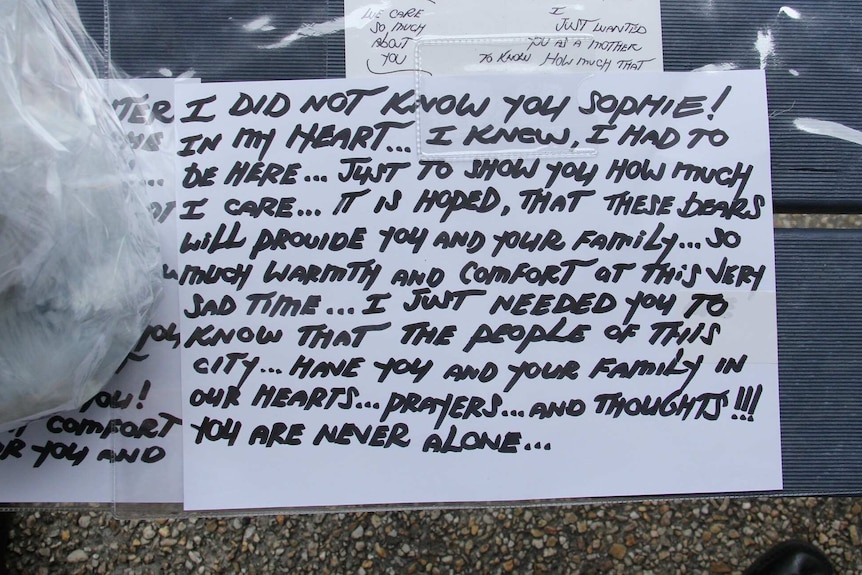 WE CARE
SO MUCH
ABOUT
YOU
I
JUST WANTED
YOU AS A MOTHER
TO KNOW HOW MUCH THAT
I DID NOT KNOW YOU SOPHIE!
IN MY HEART... I KNEW, I HAD TO
BE HERE... JUST TO SHOW YOU HOW MUCH
I CARE... IT IS HOPED, THAT THESE BEARS
WILL PROVIDE YOU AND YOUR FAMILY... SO
MUCH WARMTH AND COMFORT AT THIS VERY
SAD TIME... I JUST NEEDED YOU TO
KNOW THAT THE PEOPLE OF THIS
CITY... HAVE YOU AND YOUR FAMILY IN
OUR HEARTS... PRAYERS... AND THOUGHTS!!!
YOU ARE NEVER ALONE...
YOU
YOU!
COMFORT
YOU AND